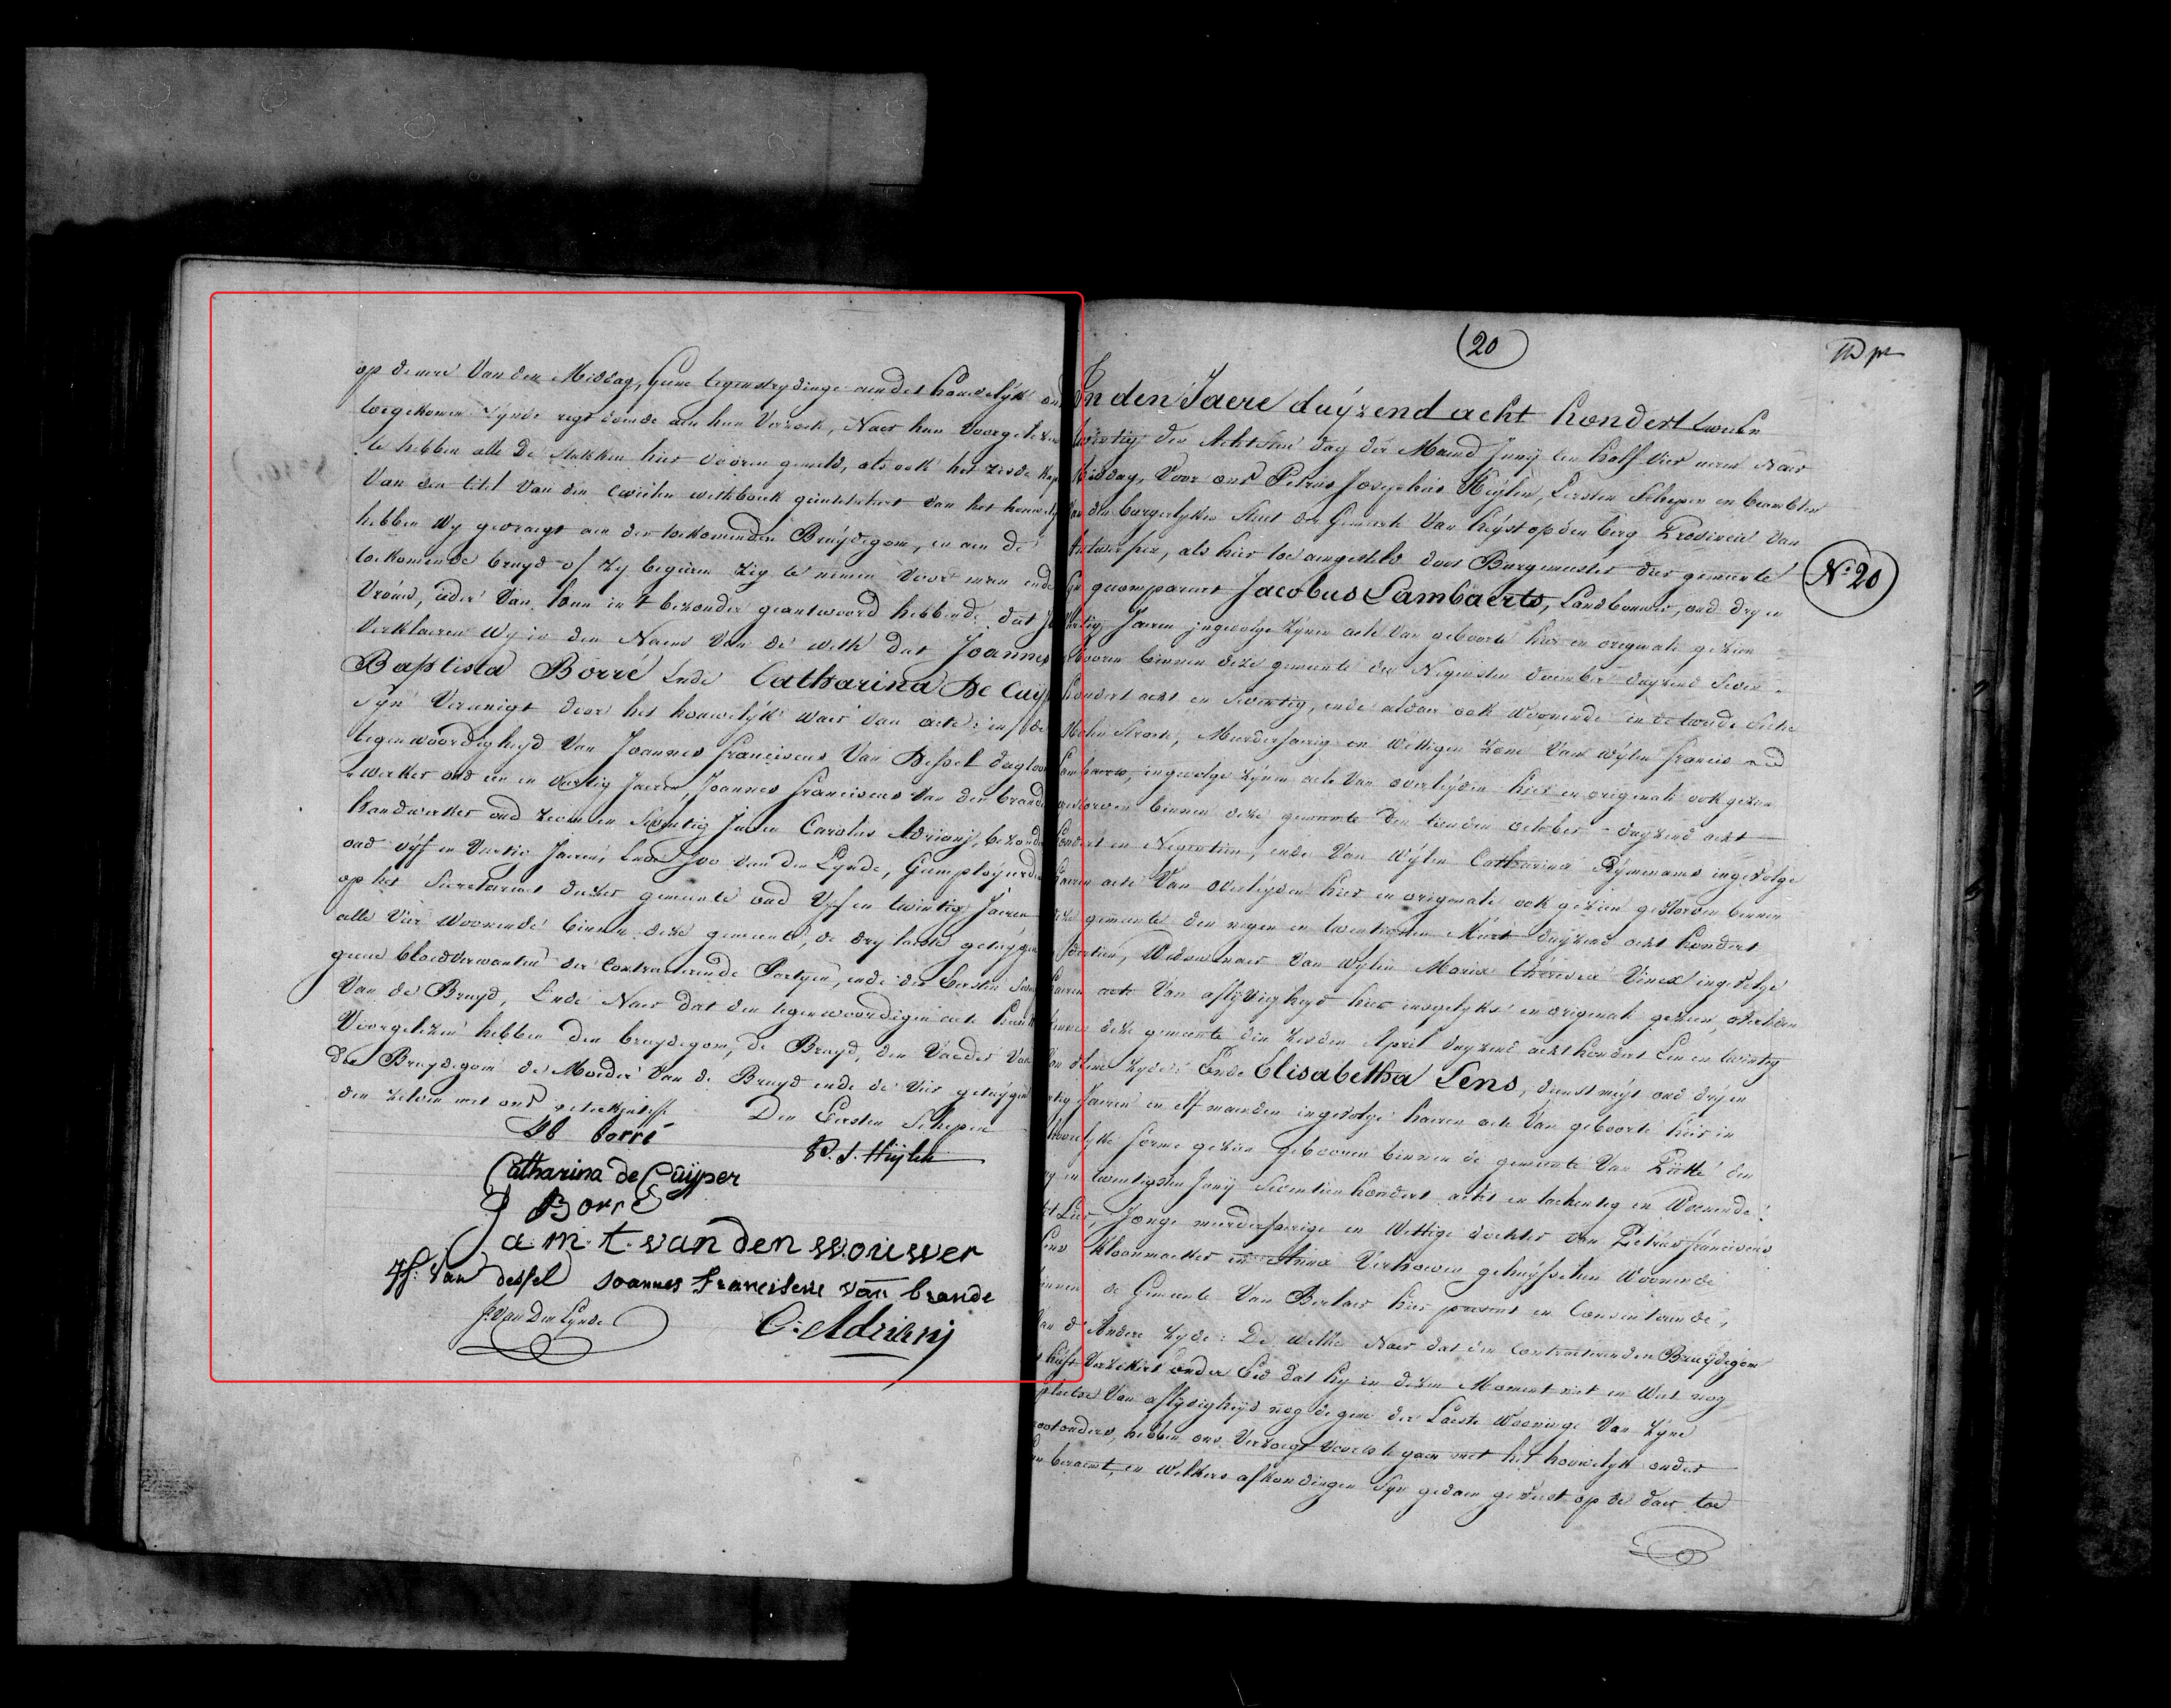 op de uren Van den Middag, geene tegenstrydinge aen dit houwelyk ons
toegekomen zynde regt doende aen hun Verzoek, Naer hun Voorgelezen
te hebben alle De stukken hier vooren gemeld, als ook het zesde Kap
Van den titel Van den Civielen wetboek geintituleert Van het houwely
hebben Wy gevraegt aen den toekomenden Bruydegom, en aen de
toekomende bruyd of zy begeiren zig te nemen Voor man ende
Vrouw, ider Van hun in 't bezonder geantwoord hebbende dat ja
Verklaeren Wy in den Naem Van de weth dat Joannes
Baptista Borré Ende Catharina De Cuyp
Syn Vereenigt door het houwelyk waer Van acte: in de
tegenwoordigheyd Van Joannes Franciscus Van Dessel dagloon
werker oud een en Veertig Jaeren, Joannes Franciscus Van den brande
handwerker oud zeven en Seventig Jaeren Carolus Adrianij, bezonde
oud vyf en Veertig Jaeren, Ende Jvo Van den Eynde, Geemployeerden
op het Secretariaet dezer gemeente oud Vyf en twintig Jaeren
alle Vier Woonende binnen deze gemeente, de dry laeste getuygen
geene bloedverwanten der Contracterende Partyen, ende den Eersten
Van de Bruyd, Ende Naer dat den tegenwoordigen acte
Voorgelezen hebben den bruydegom, de Bruyd, den Vaeder Van
den Bruydegom de Moeder Van de Bruyd ende de Vier getuygen
den zelven met ons geteekent
Den Eersten Schepen
JB borré
P. J. Huylen
Catharina de Cuÿper
J Borré
a. m. t. van den wouwer
J f: Van dessel Joannes Franciscus van brande
J. Van Den Eynde
C: Adrianij
20
In den Jaere duyzend acht hondert twee en
twintig den Achtsten dag der Maend Juny ten half vier uren Naer
Middag, Voor ons Petrus Josephus Huylen, Eersten Schepen en beambten
Van den borgerlyken Staet der Gemeente Van heyst op den berg Provincie Van
Antwerpen, als hier toe aengesteld door Burgemeester dezer gemeente
N.º 20
Syn gecompareert Jacobus Lambaerts, Landbouwer, oud dry en
Jaeren ingevolge zynen acte Van geboorte hier en originali gezien
gebooren binnen deze gemeente den Negensten december duyzend Seven
hondert acht en Seventig, ende aldaer ook Woonende in de tweede Sectie
Molen Straet, Meerderjaerig en Wettigen zoone Van wylen Francis
Lambaerts, ingevolge zynen acte Van overlyden hier en originali ook gezien
gestorven binnen deze gemeente den tienden october duyzend acht
hondert en Negentien, ende Van Wylen Catharina Rymenams ingevolge
haeren acte Van overlyden hier en originali ook gezien gestorven binnen
deze gemeente den negen en twentigsten Meert duyzend acht hondert
dertien, Weduwenaer Van wylen Maria Theresia Vinex ingevolge
haeren acte Van aflyvigheyd hier insgelyks en originali gezien, overleden
binnen deze gemeente den zesden April duyzend acht hondert Een en twintig
Van d'eene zyde: Ende Elisabetha Sens, dienstmeyt oud dry en
dertig Jaeren en elf maenden ingevolge haeren acte Van geboorte hier in
behoorelyke forme gezien gebooren binnen de gemeente Van den
dry en twentigsten Juny Seventien hondert acht en tachentig en Woonende
tot Lier, Jonge meerderjaerige en Wettige dochter van Petrus franciscus
Sens Kloonmaeker en Anna Verhoeven gehuyssetten Woonende
binnen de Gemeente Van Berlaer hier present en Consenteerende,
Van d'Andere zyde: De welke Naer dat den Contracterenden Bruydegom
heeft Verzekert onder Eed dat hy in dezen Moment niet en Weet nog
plaetse Van aflyvigheyd nog de gene der Laeste Wooninge Van zyne
grootouders, hebben ons Verzoegt Voorts te gaen met het houwelyk onder
hun beraemt, en Welkers afkondingen Syn gedaen geweest op de daer toe